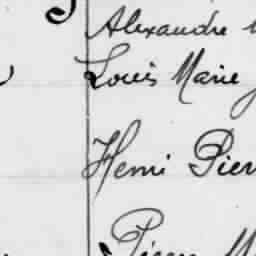 Alexandre
Louis Marie
Henri Pierr
Pierre M